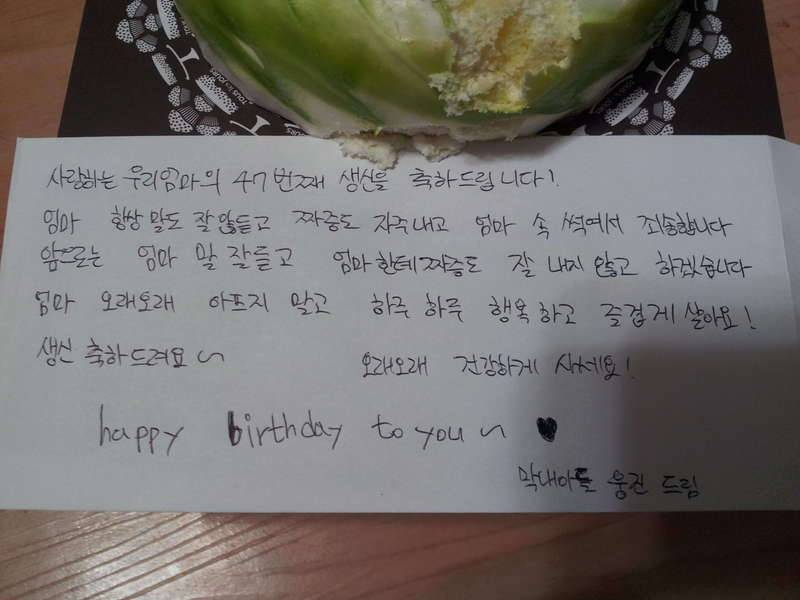 사랑하는 우리엄마의 47번째 생신을 축하드립니다!
엄마 항상 말도 잘 않듣고 짜증도 자주내고 엄마 속 썩여서 죄송합니다
앞으로는 엄마 말 잘듣고 엄마한테 짜증도 잘 내지 않고 하겠습니다
엄마 오래오래 아프지 말고 하루 하루 행복하고 즐겁게 살아요!
생신 축하드려요~
오래오래 건강하게 사세요!
happy birthday to you ~ ♥
막내아들 웅진 드림